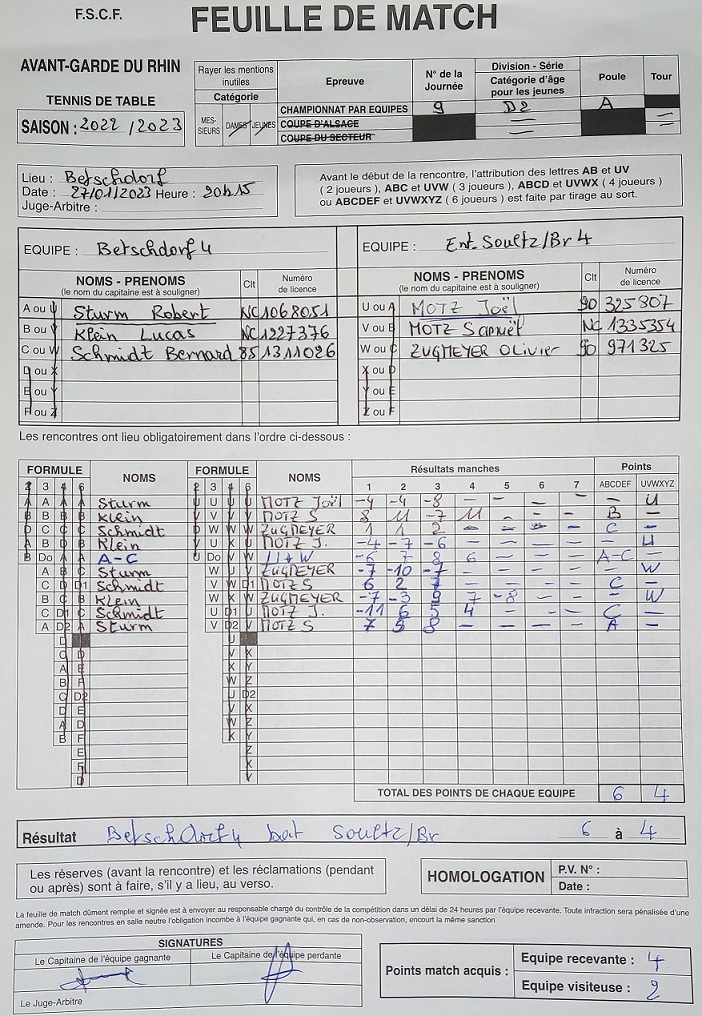 F.S.C.F.
FEUILLE DE MATCH
AVANT-GARDE DU RHIN
TENNIS DE TABLE
SAISON : 2022 / 2023
Rayer les mentions inutiles
Catégorie
MES-SIEURS DAMES JEUNES
Epreuve
N° de la Journée
Division - Série
Catégorie d'âge pour les jeunes
Poule
Tour
CHAMPIONNAT PAR EQUIPES 9 D2 A
COUPE D'ALSACE
COUPE DU SECTEUR
Lieu : Betschdorf
Date : 27/01/2023 Heure : 20h15
Juge-Arbitre :
Avant le début de la rencontre, l'attribution des lettres AB et UV
( 2 joueurs ), ABC et UVW ( 3 joueurs ), ABCD et UVWX ( 4 joueurs )
ou ABCDEF et UVWXYZ ( 6 joueurs ) est faite par tirage au sort.
EQUIPE : Betschdorf 4
EQUIPE : Ent. Soultz/Br 4
NOMS - PRENOMS
(le nom du capitaine est à souligner)
Clt
Numéro de licence
NOMS - PRENOMS
(le nom du capitaine est à souligner)
Clt
Numéro de licence
A ou U Sturm Robert NC 1068051
U ou A MOTZ Joël 90 325307
B ou V Klein Lucas NC 1227376
V ou B MOTZ Samuël NC 1335354
C ou W Schmidt Bernard 85 1311026
W ou C ZUGMEYER Olivier 90 971325
D ou X X ou D
E ou Y Y ou E
F ou Z Z ou F
Les rencontres ont lieu obligatoirement dans l'ordre ci-dessous :
FORMULE NOMS FORMULE NOMS Résultats manches Points
2 3 4 6 2 3 4 6 1 2 3 4 5 6 7 ABCDEF UVWXYZ
A A A A Sturm U U U U MOTZ Joël -4 -4 -8 - - - - - U
B B B B Klein V V V V MOTZ S 8 11 -7 11 - - - B -
D C C C Schmidt D W W W ZUGMEYER 1 1 2 - - - - C -
A B D B Klein V U X U MOTZ J. -4 -7 -6 - - - - - U
B Do A A A-C U Do V W U+W -6 7 8 6 - - - A-C -
A B C Sturm W U V ZUGMEYER -7 -10 -7 - - - - - W
C D D1 Schmidt V W D1 MOTZ S 6 2 7 - - - - C -
B C B Klein W X W ZUGMEYER -7 -3 9 7 -8 - - - W
C D1 C Schmidt U D1 U MOTZ J. -11 6 5 4 - - - C -
A D2 A Sturm V D2 V MOTZ S 7 5 8 - - - - A -
D U
C D V X
A E X Y
B F W Z
C D2 U D2
D E V X
A D W Z
B F X Y
E X
F Z
D V
TOTAL DES POINTS DE CHAQUE EQUIPE 6 4
Résultat Betschdorf 4 bat Soultz/Br 6 à 4
Les réserves (avant la rencontre) et les réclamations (pendant
ou après) sont à faire, s'il y a lieu, au verso.
HOMOLOGATION
P.V. N° :
Date :
La feuille de match dûment remplie et signée est à envoyer au responsable chargé du contrôle de la compétition dans un délai de 24 heures par l'équipe recevante. Toute infraction sera pénalisée d'une
amende. Pour les rencontres en salle neutre l'obligation incombe à l'équipe gagnante qui, en cas de non-observation, encourt la même sanction
SIGNATURES
Le Capitaine de l'équipe gagnante
Le Capitaine de l'équipe perdante
Le Juge-Arbitre
Points match acquis :
Equipe recevante : 4
Equipe visiteuse : 2